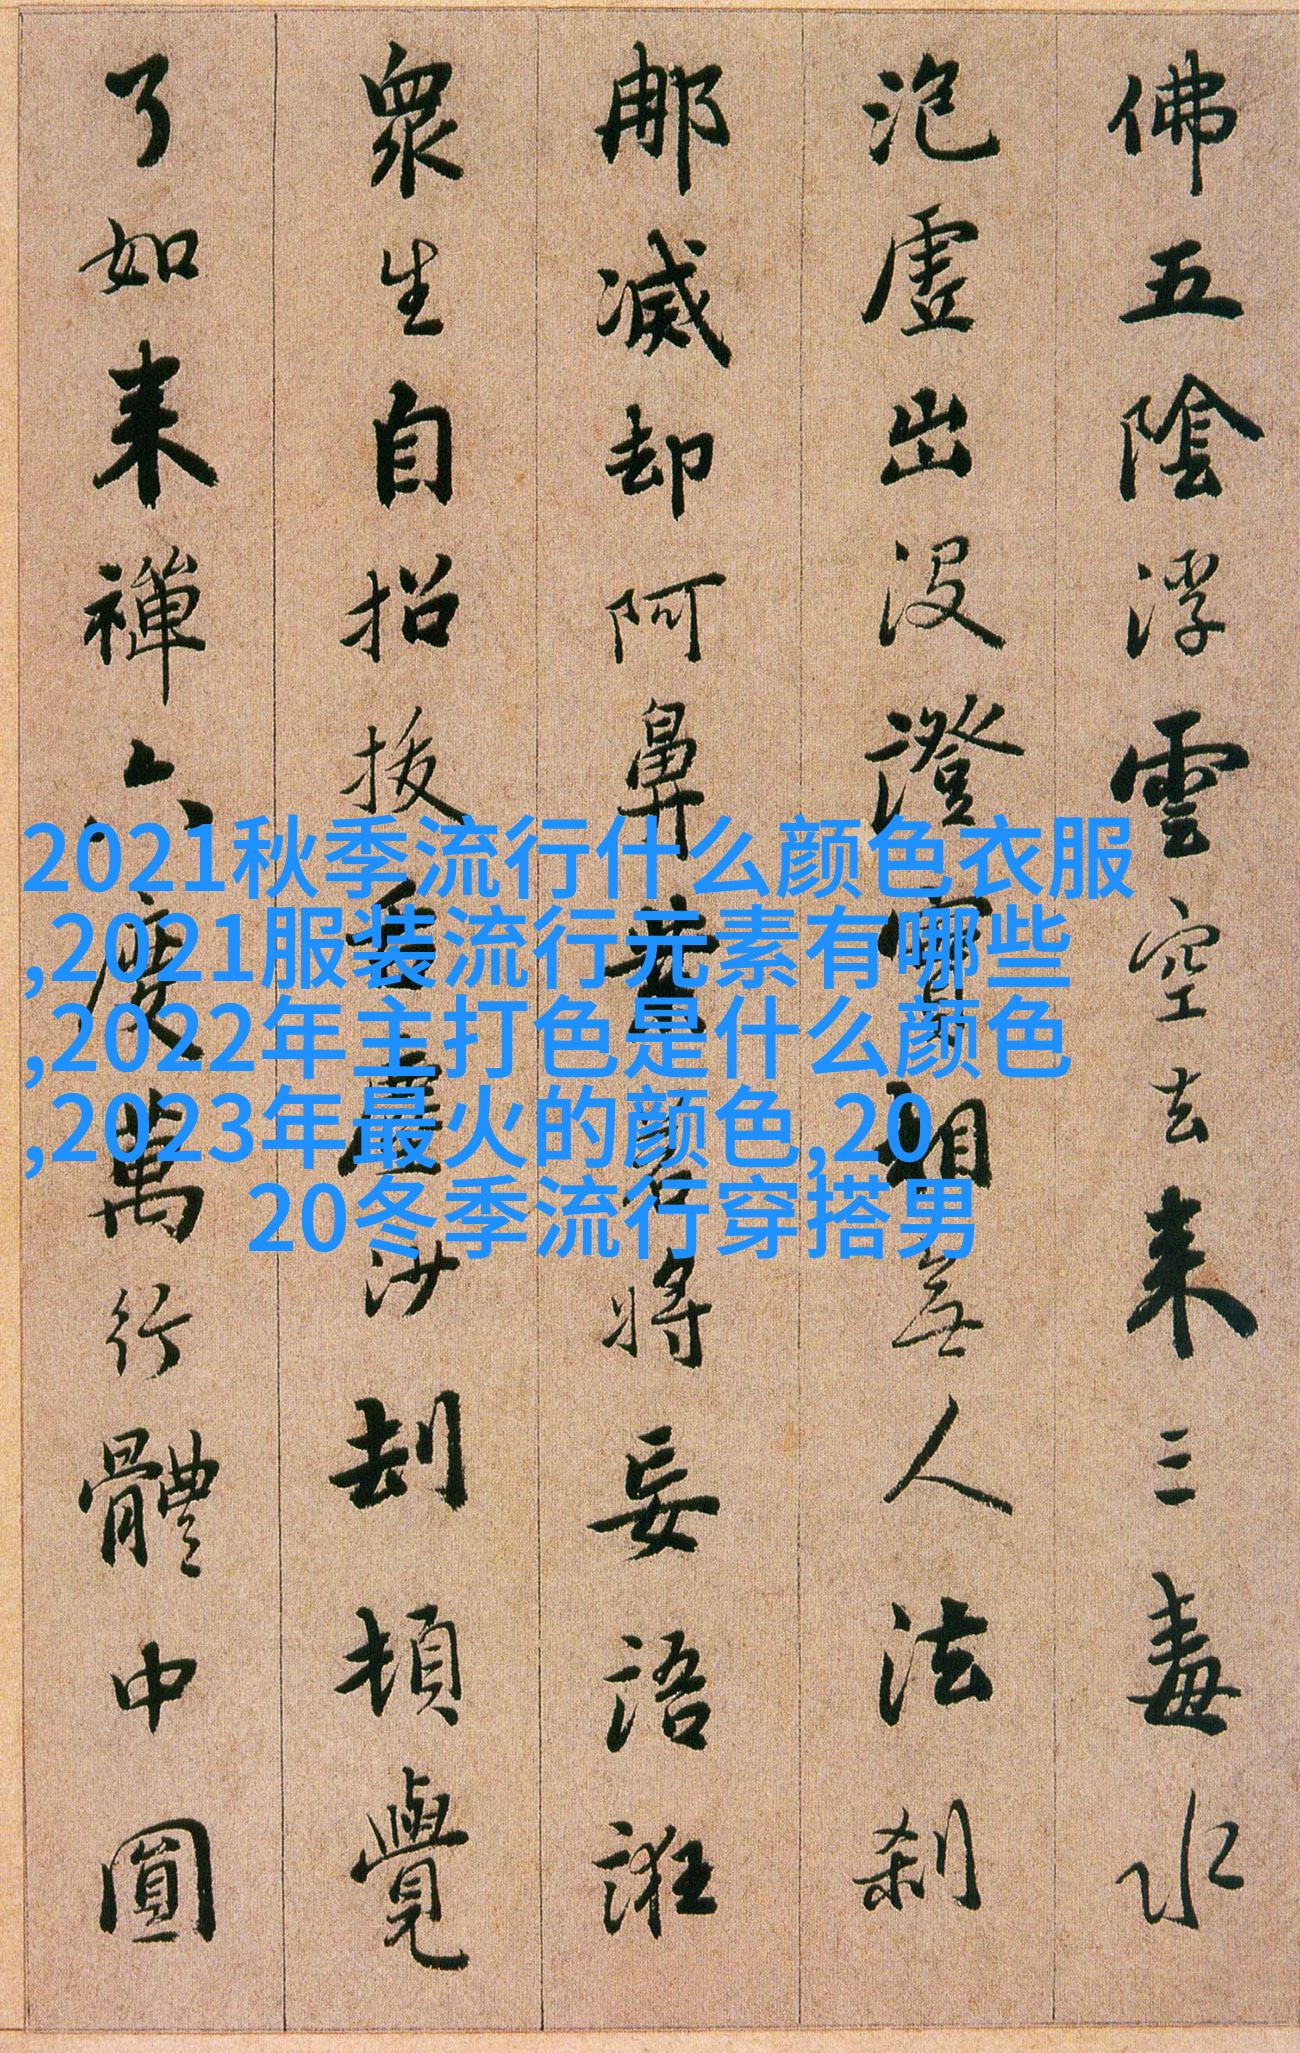 佛五陰浮雲空去来三毒水
泡虛出没證實相無人法刹
那滅却阿鼻業若將妄語誑
眾生自招拔舌塵沙劫頓覺
了如来禪六度萬行體中圓
2021秋季流行什么颜色衣服
,2021服装流行元素有哪些
,2022年主打色是什么颜色
,2023年最火的颜色,20
20冬季流行穿搭男